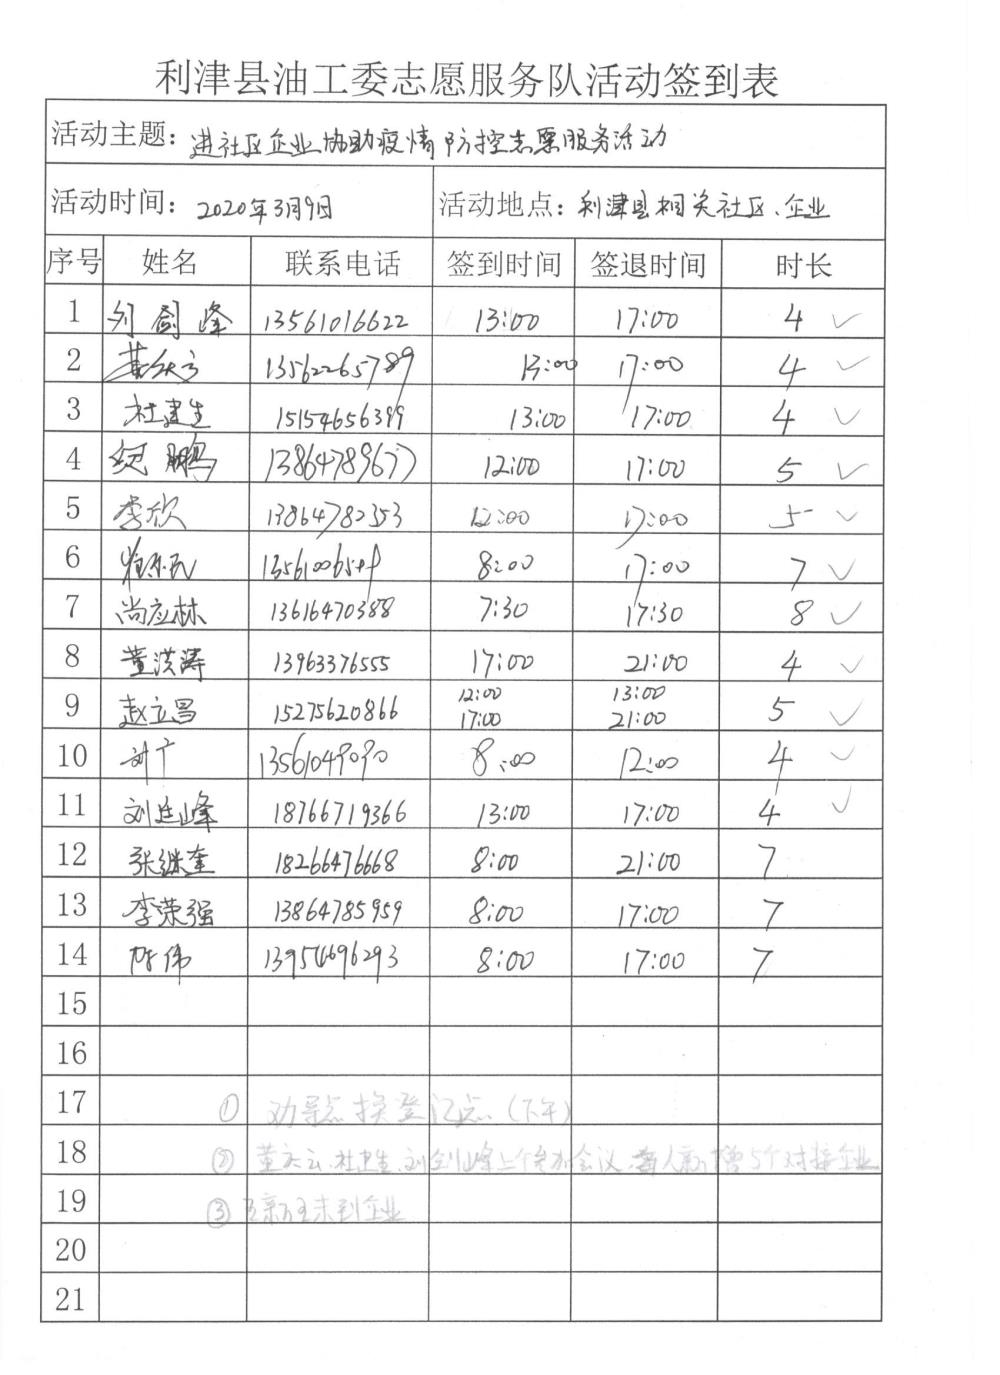 利津县油工委志愿服务队活动签到表
活动主题：进社区企业协助疫情防控志愿服务活动
活动时间：2020年3月9日 活动地点：利津县相关社区、企业
序号 姓名 联系电话 签到时间 签退时间 时长
1 刘剑峰 13561016622 13:00 17:00 4 ✓
2 13562265789 13:00 17:00 4 ✓
3 杜建生 15154656399 13:00 17:00 4 ✓
4 纪鹏 13864789677 12:00 17:00 5 ✓
5 李欣 13864782353 12:00 17:00 5 ✓
6 8:00 17:00 7 ✓
7 尚应林 13616470388 7:30 17:30 8 ✓
8 董洪涛 13963376555 17:00 21:00 4 ✓
9 赵立昌 15275620866 12:00 17:00 13:00 21:00 5 ✓
10 8:00 12:00 4 ✓
11 刘廷峰 18766719366 13:00 17:00 4 ✓
12 张继奎 18266476668 8:00 21:00 7
13 李荣强 13864785959 8:00 17:00 7
14 陈伟 13954696293 8:00 17:00 7
15
16
17 ① 劝导点换登记点（下午）
18 ②
19 ③ 未到企业
20
21